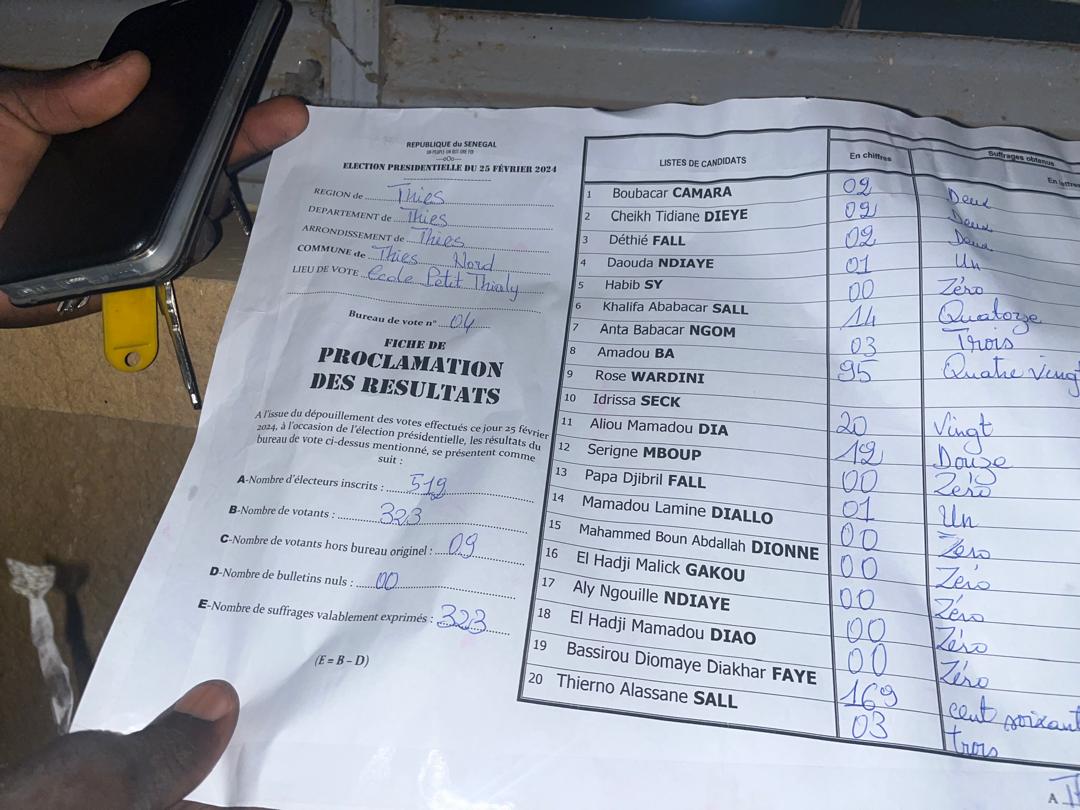 REPUBLIQUE du SENEGAL
UN PEUPLE-UN BUT-UNE FOI
---oOo---
ELECTION PRESIDENTIELLE DU 25 FÉVRIER 2024
REGION de Thies
DEPARTEMENT de Thies
ARRONDISSEMENT de Thies
COMMUNE de Thies Nord
LIEU DE VOTE école Petit Thialy
Bureau de vote n° 04
FICHE DE
PROCLAMATION
DES RESULTATS
A l'issue du dépouillement des votes effectués ce jour 25 février
2024, à l'occasion de l'élection présidentielle, les résultats du
bureau de vote ci-dessus mentionné, se présentent comme
suit :
A-Nombre d'électeurs inscrits : 519
B-Nombre de votants : 323
C-Nombre de votants hors bureau originel : 09
D-Nombre de bulletins nuls : 00
E-Nombre de suffrages valablement exprimés : 323
(E = B – D)
LISTES DE CANDIDATS En chiffres Suffrages obtenus
En lettres
1 Boubacar CAMARA 02 Deux
2 Cheikh Tidiane DIEYE 02 Deux
3 Déthié FALL 02 Deux
4 Daouda NDIAYE 01 Un
5 Habib SY 00 Zéro
6 Khalifa Ababacar SALL 14 Quatorze
7 Anta Babacar NGOM 03 Trois
8 Amadou BA 95 Quatre vingt
9 Rose WARDINI
10 Idrissa SECK 20 Vingt
11 Aliou Mamadou DIA 12 Douze
12 Serigne MBOUP 00 Zéro
13 Papa Djibril FALL 01 Un
14 Mamadou Lamine DIALLO 00 Zéro
15 Mahammed Boun Abdallah DIONNE 00 Zéro
16 El Hadji Malick GAKOU 00 Zéro
17 Aly Ngouille NDIAYE 00 Zéro
18 El Hadji Mamadou DIAO 00 Zéro
19 Bassirou Diomaye Diakhar FAYE 169 cent soixant
20 Thierno Alassane SALL 03 trois
A